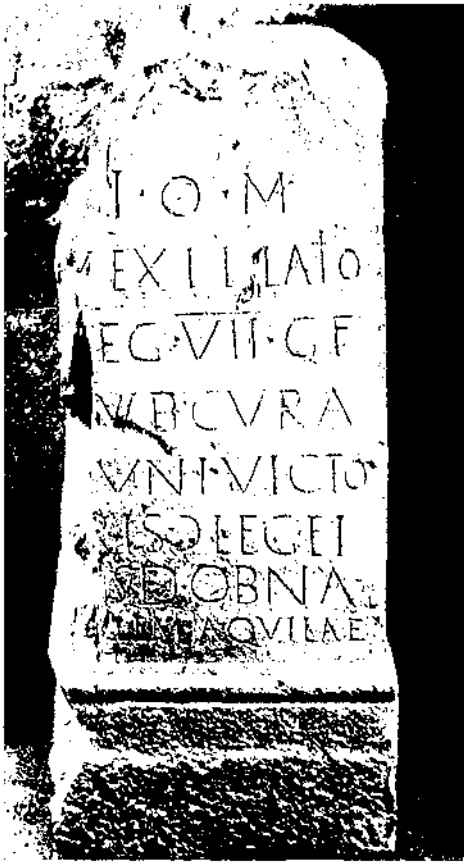 I · O · M
VEXILLATIO
EG · VII · G F
VB · CVRA
VNI · VICTO
ISↃLEGEI
SDOBNA
AQVILAE